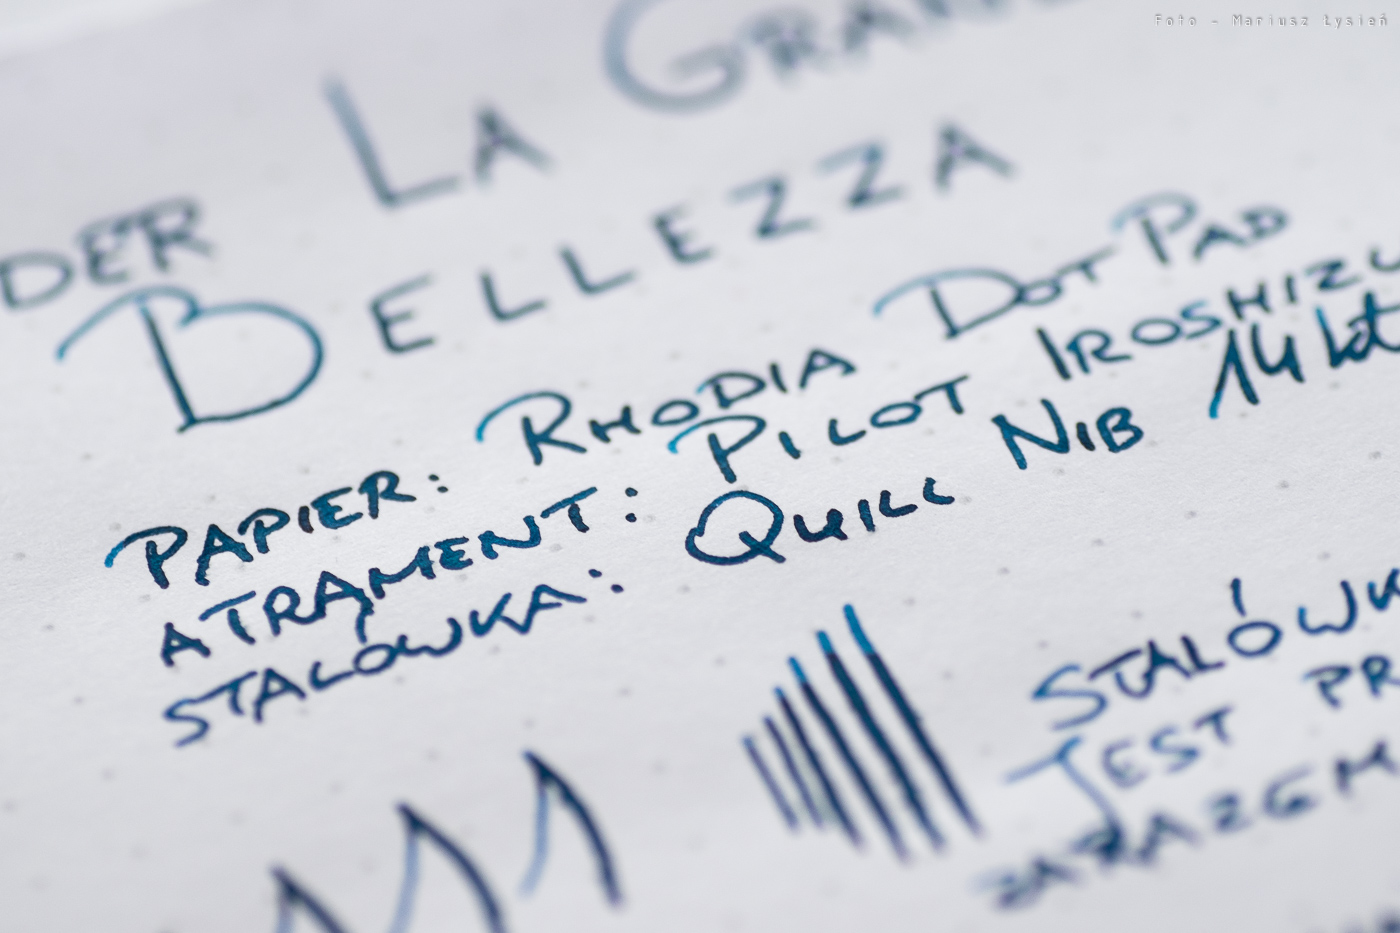 Foto - Mariusz Łysień
DER LA
BELLEZZA
PAPIER: RHODIA DOT PAD
ATRAMENT: PILOT IROSHIZU
STALÓWKA: QUILL NIB 14 kt
STALÓWK
JEST PR
ZARAZEM